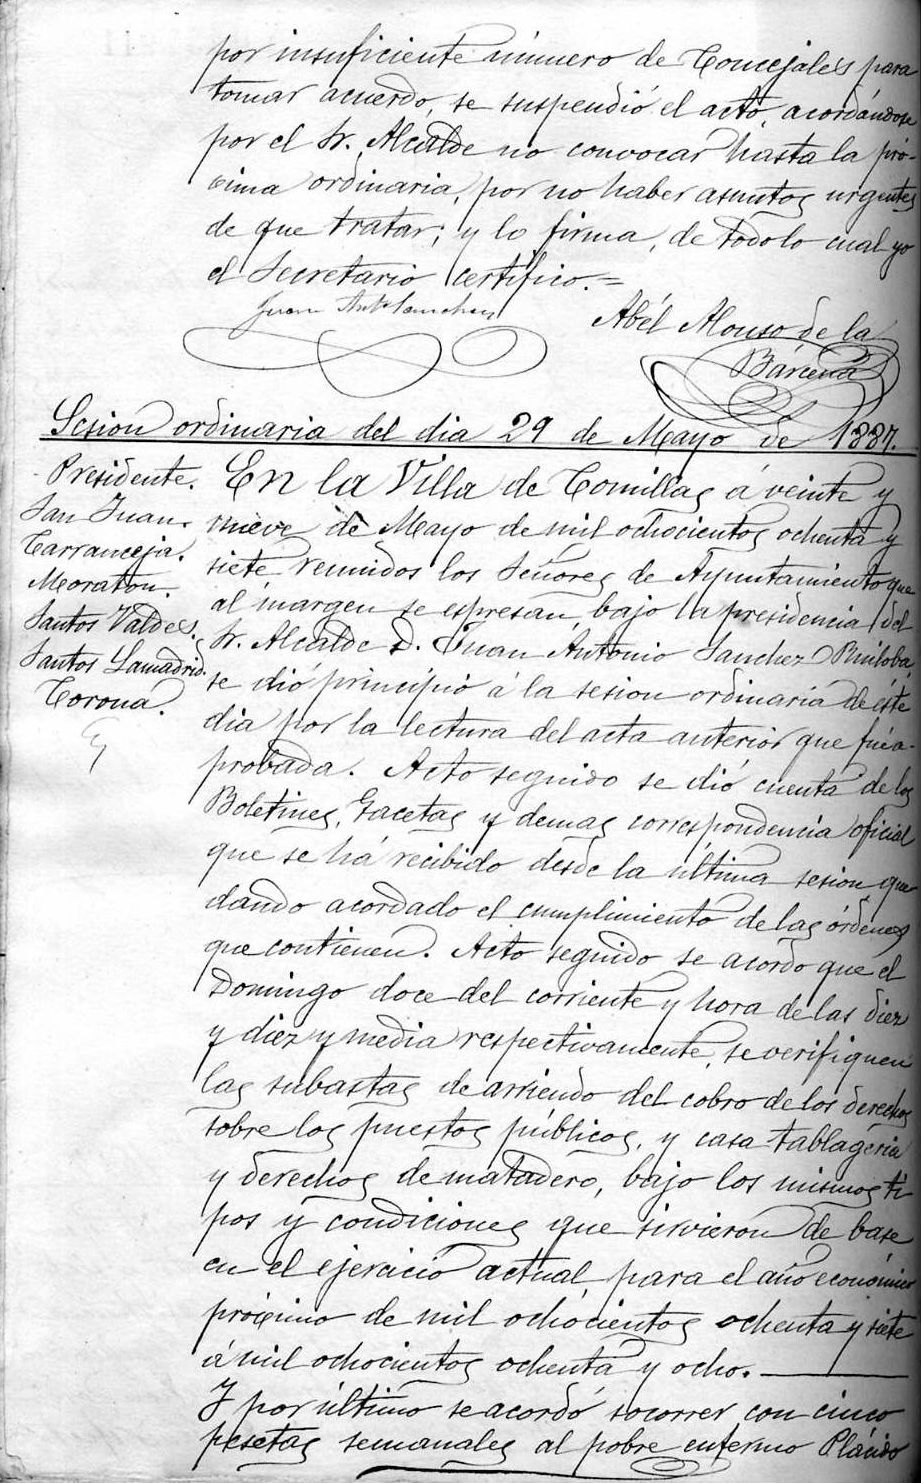 por insuficiente número de Concejales para
tomar acuerdo, se suspendió el acto, acordándose
por el Sr. Alcalde no convocar hasta la pró-
cima ordinaria, por no haber asuntos urgentes
de que tratar; y lo firma, de todo lo cual yo
el Secretario certifico.=
Juan Ant.º Sanchez
Abél Alonso de la
Bárcena
Sesion ordinaria del dia 29 de Mayo de 1887.
Presidente.
San Juan.
Carranceja.
Moraton.
Santos Valdes.
Santos Lamadrid.
Corona.
En la Villa de Comillas á veinte y
nueve de Mayo de mil ochocientos ochenta y
siete reunidos los Señores de Ayuntamiento que
al margen se espresan, bajo la presidencia del
Sr. Alcalde D. Juan Antonio Sanchez Ruiloba
se dió principio á la sesion ordinaria de éste
dia por la lectura del acta anterior que fué a-
probada. Acto seguido se dió cuenta de los
Boletines, Gacetas y demas correspondencia oficial
que se há recibido desde la última sesion que
dando acordado el cumplimiento de las órdenes
que contienen. Acto seguido se acordo que el
Domingo doce del corriente y hora de las diez
y diez y media respectivamente, se verifiquen
las subastas de arriendo del cobro de los derechos
sobre los puestos públicos, y casa tablageria
y derechos de matadero, bajo los mismos ti-
pos y condiciones que sirvieron de base
en el ejercicio actual para el año económico
próximo de mil ochocientos ochenta y siete
á mil ochocientos ochenta y ocho.
Y por último se acordó socorrer con cinco
pesetas semanales al pobre enfermo Plácido